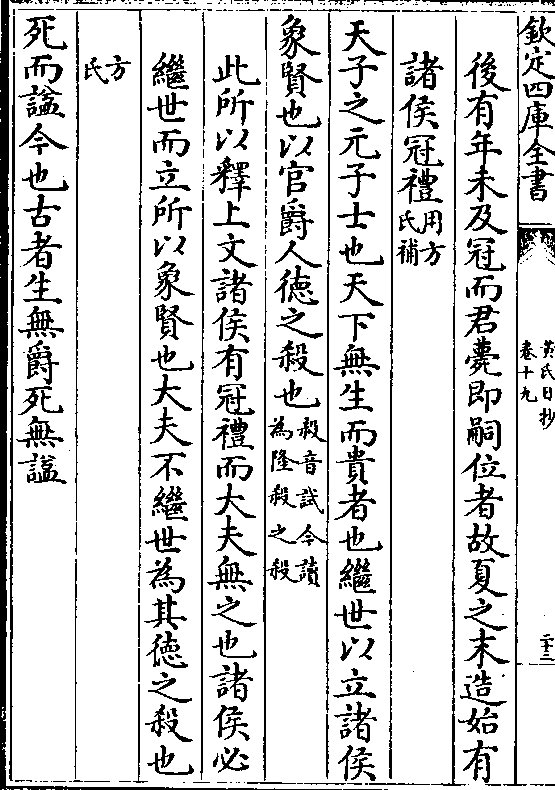 欽定四庫全書
黃氏日抄
卷十九
二十三
後有年未及冠而君薨即嗣位者故夏之末造始有
諸侯冠禮用方
氏補
天子之元子士也天下無生而貴者也繼世以立諸侯
象賢也以官爵人德之殺也殺音試今讀
為隆殺之殺
此所以釋上文諸侯有冠禮而大夫無之也諸侯必
繼世而立所以象賢也大夫不繼世為其德之殺也
方
氏
死而諡今也古者生無爵死無諡